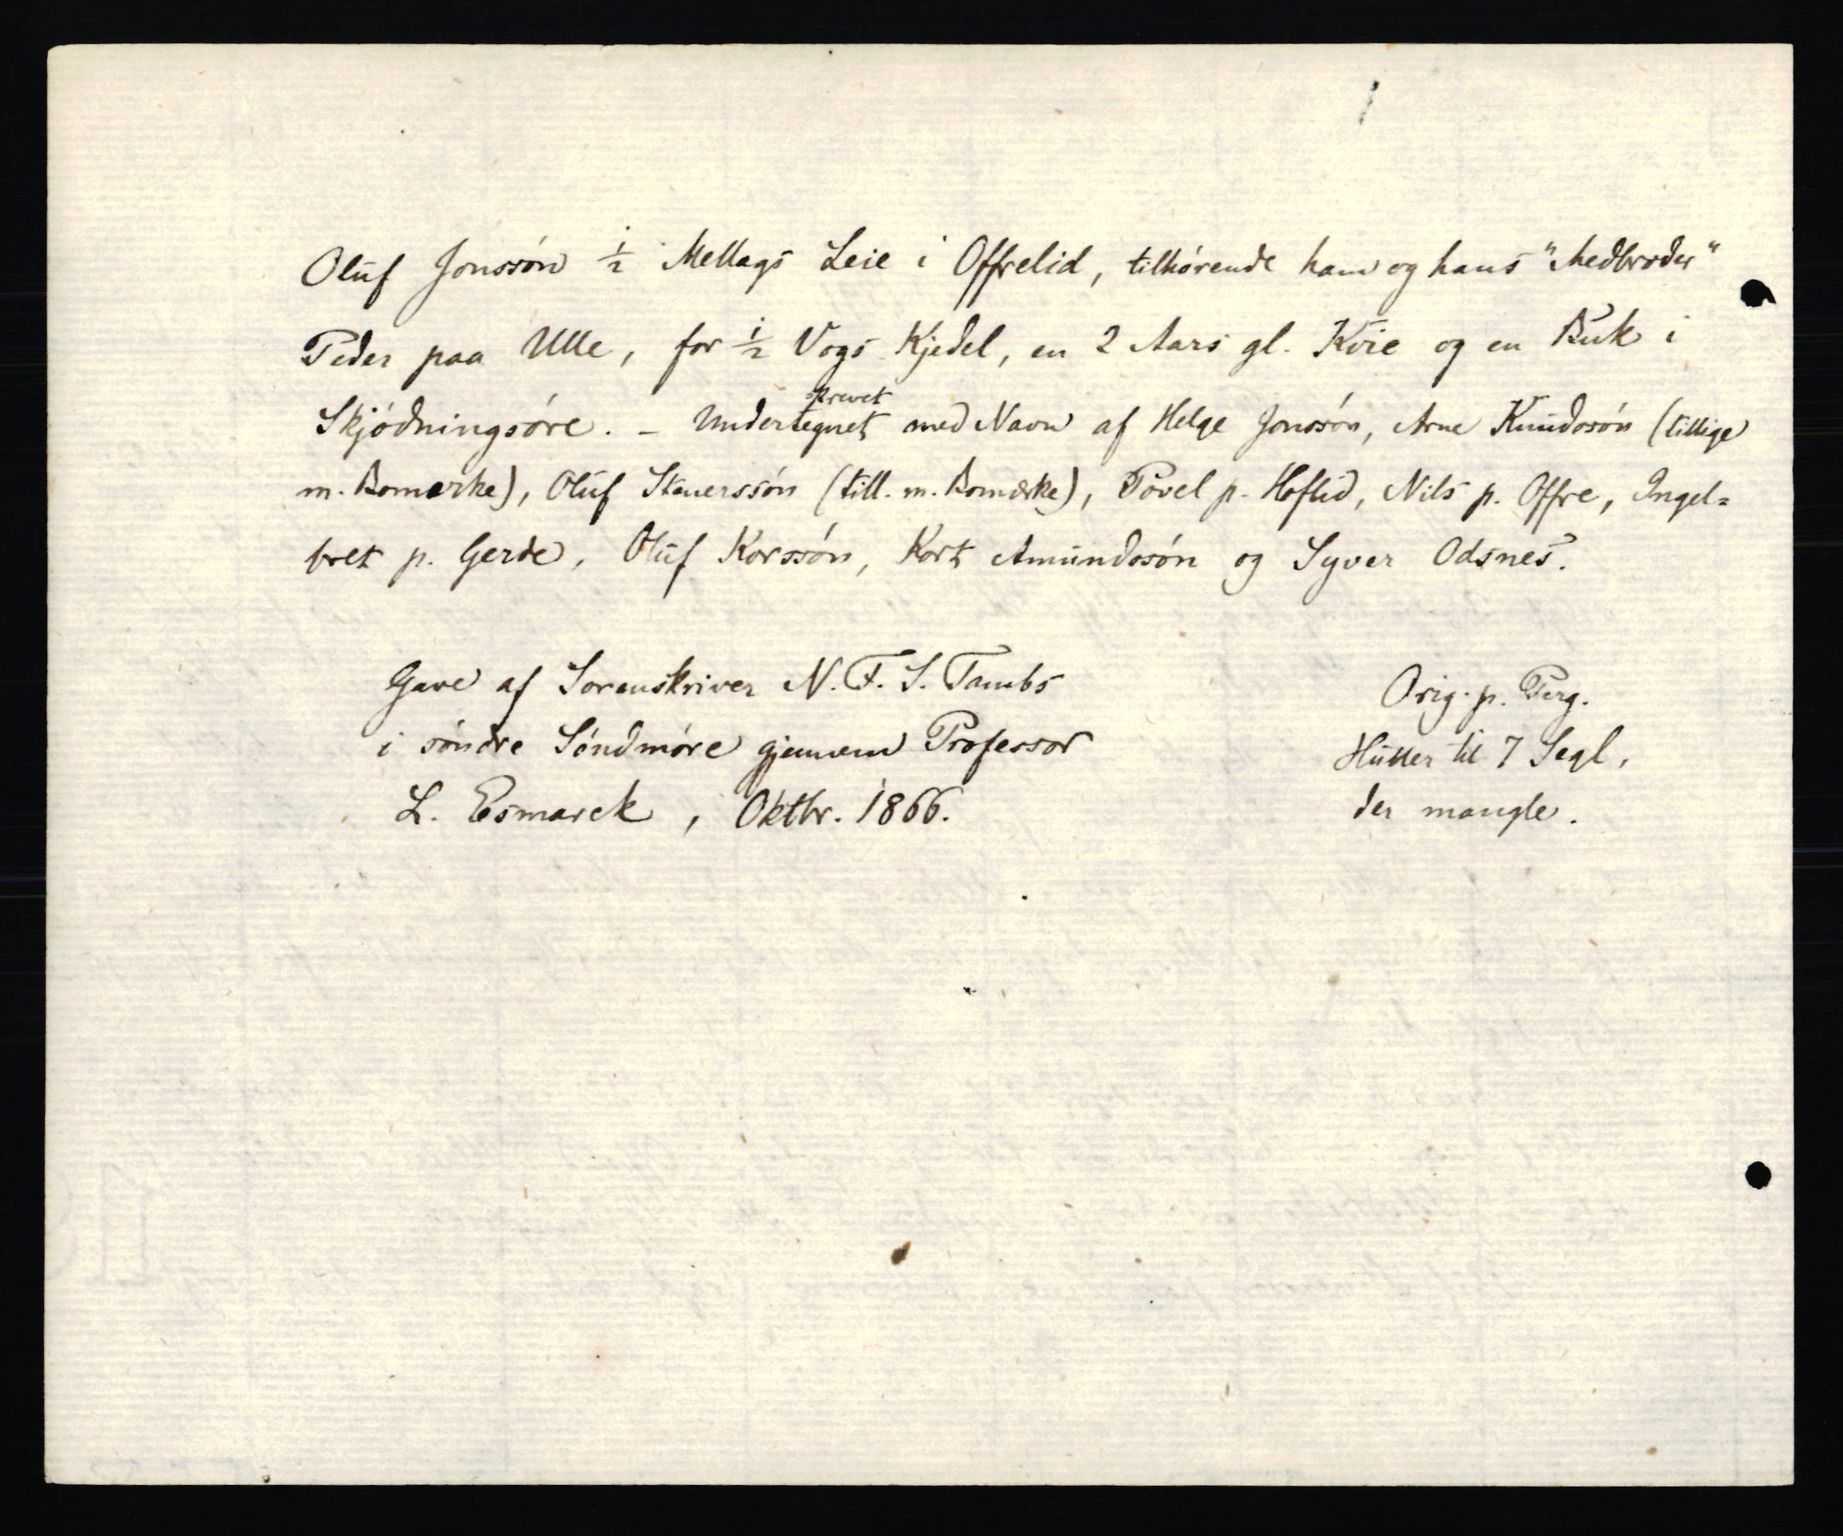 Oluf Jonssön ½ Mellags Leie i Offrelid, tilhörende ham og hans "Medbroder"
Peder paa Ulle, for ½ Vogs Kjedel, en 2 Aars gl. Kvie og en Buk i
Skjödningsöre. – Undertegnet med Navn af Helge Jonssön, Arne Knudssön (tillige
skrevet
m. Bomærke), Oluf Stenerssön (till. m. Bomærke), Povel p. Hoflid, Nils p. Offre, Ingel=
bret p. Gerde, Oluf Korssön, Kort Amundssön og Syver Odsnes.
Gave af Sorenskriver N. F. S. Tambs
i söndre Söndmöre gjennem Professor
L. Esmarck, Oktbr. 1866.
Orig. p. Perg.
Huller til 7 Segl,
der mangle.